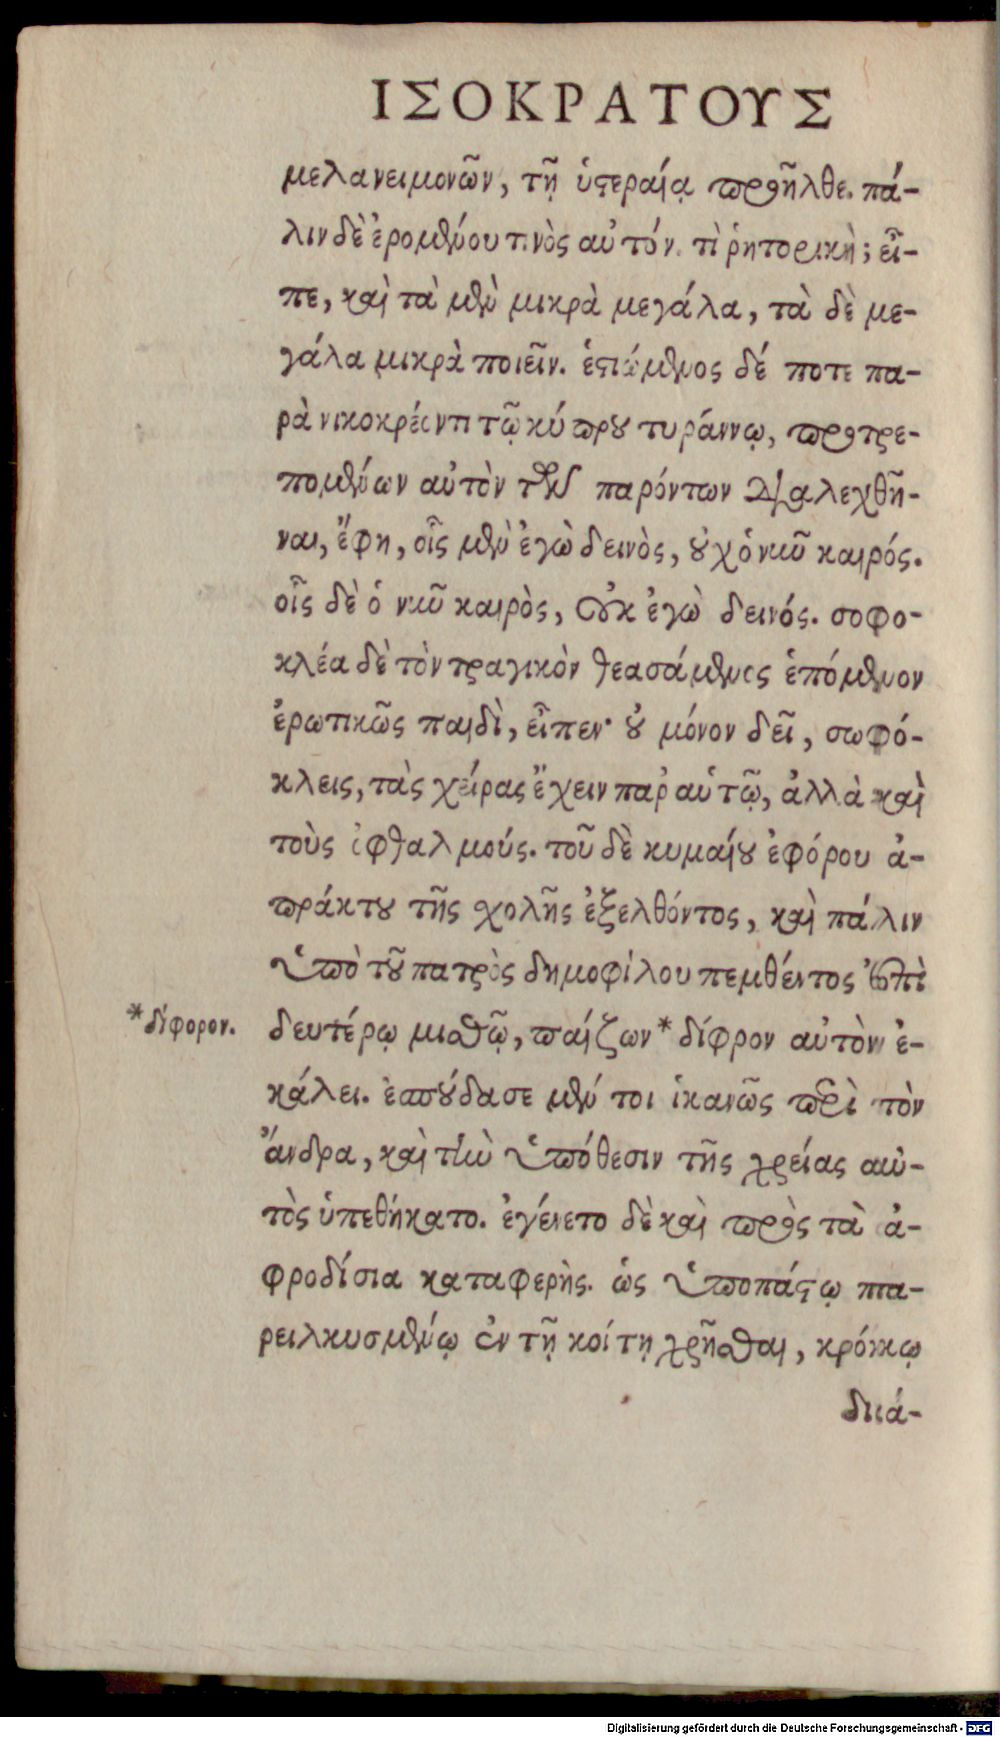 ΙΣΟΚΡΑΤΟΥΣ
μελανειμονῶν, τῇ ὑστεραίᾳ προῆλθε. πά-
λιν δὲ ἐρομένου τινὸς αὐτόν. τὶ ῥητορικὴ; εἶ-
πε, καὶ τὰ μὲν μικρὰ μεγάλα, τὰ δὲ με-
γάλα μικρὰ ποιεῖν. ἑστιώμενος δέ ποτε πα-
ρὰ νικοκρέοντι τῷ κύπρου τυράννῳ, προτρε-
πομένων αὐτὸν τῶν παρόντων διαλεχθῆ-
ναι, ἔφη, οἷς μὲν ἐγὼ δεινὸς, οὐχ ὁ νῦν καιρός.
οἷς δὲ ὁ νῦν καιρὸς, οὐκ ἐγὼ δεινός. σοφο-
κλέα δὲ τὸν τραγικὸν θεασάμενος ἑπόμενον
ἐρωτικῶς παιδὶ, εἶπεν· οὐ μόνον δεῖ, σωφό-
κλεις, τὰς χεῖρας ἔχειν παρ' αὑτῷ, ἀλλὰ καὶ
τοὺς ὀφθαλμούς. τοῦ δὲ κυμαίου ἐφόρου ἀ-
πράκτου τῆς χολῆς ἐξελθόντος, καὶ πάλιν
ὑπὸ τοῦ πατρὸς δημοφίλου πεμθέντος ἐπὶ
* δίφορον.
δευτέρῳ μισθῷ, παίζων * δίφρον αὐτὸν ἐ-
κάλει. ἐσπούδασε μέν τοι ἱκανῶς περὶ τὸν
ἄνδρα, καὶ τὴν ὑπόθεσιν τῆς χρείας αὐ-
τὸς ὑπεθήκατο. ἐγένετο δὲ καὶ πρὸς τὰ ἀ-
φροδίσια καταφερὴς. ὡς ὑποπάστῳ πα-
ρειλκυσμένῳ ἐν τῇ κοίτῃ χρῆσθαι, κρόκῳ
διά-
Digitalisierung gefördert durch die Deutsche Forschungsgemeinschaft - DFG